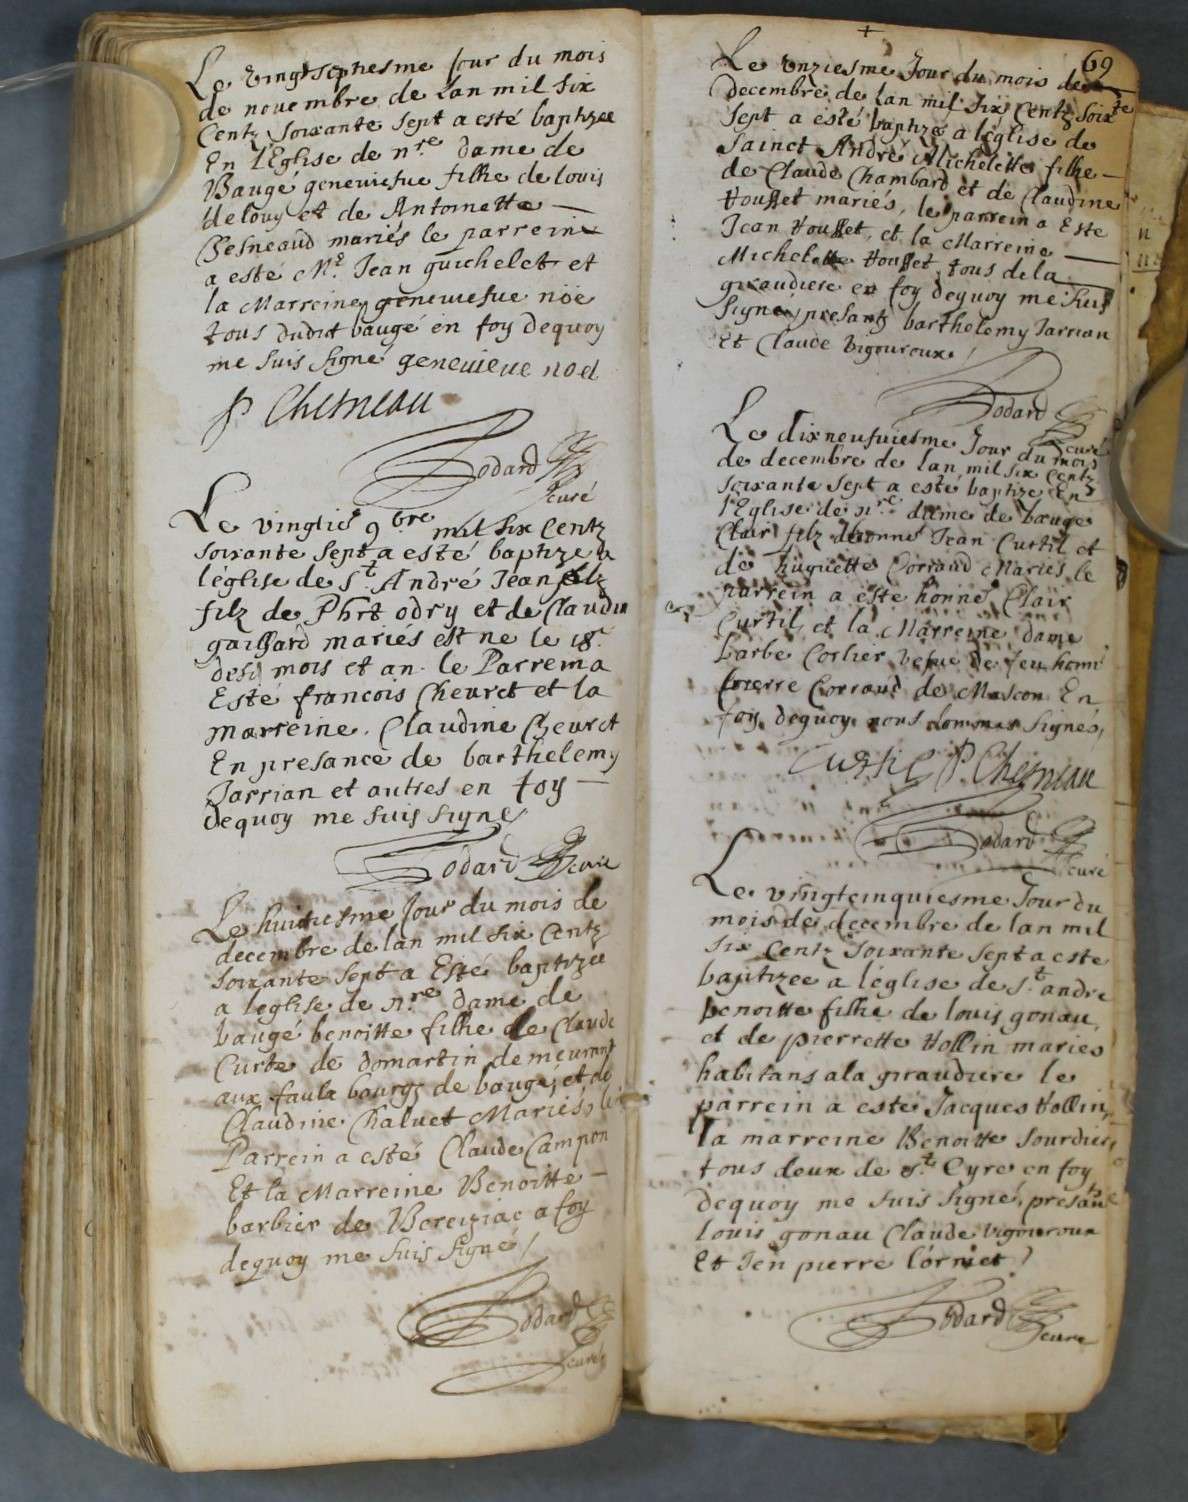 Le vingtseptiesme Jour du mois
de nouembre de Lan mil six
Centz soixante sept a esté baptizee
En l'Eglise de nre dame de
Baugé geneuiefue filhe de louis
delouy et de Antoinette
Chesneaud mariés le parrein
a esté Mr Jean guichelet et
la Marreine geneuiefue nöe
tous dudit baugé en foy dequoy
me suis signé geneuieue noel
P Chesneau
Dodard
curé
Le vingtie 9bre mil six Centz
soixante sept a esté baptizé a
léglise de St André Jean filz
filz de Phrt odry et de Claudin
gailhard mariés est ne le 18e
desd mois et an. le Parrein a
Esté francois Cheuret et la
marreine. Claudine Cheuret
En presance de barthelemy
Jarrian et autres en foy
dequoy me suis signé
Dodard curé
Le huictiesme Jour du mois de
decembre de lan mil six Centz
soixante sept a Esté baptizee
a leglise de nre dame de
baugé benoitte filhe de Claude
Curte de domartin demeurant
aux faulx bourgs de baugé, et de
Claudine Chaluet Mariés, le
Parrein a esté Claude Campon
Et la Marreine Benoitte
barbier de Bereiziac a foy
dequoy me suis signé
Dodard
curé
69
Le vnziesme Jour du mois de
decembre de lan mil six Centz soixte
sept a esté baptizé a léglise de
Sainct André Michelette filhe
de Claude Chambard et de Claudine
Vouffet mariés, le parrein a Este
Jean Vouffet, et la Marreine
Michelette Vouffet tous de la
giraudiere en foy dequoy me suis
signé, presantz barthelemy Jarrian
Et Claude Vigouroux
Dodard
curé
Le dixneufuiesme Jour du mois
de decembre de lan mil six Centz
soixante sept a esté baptizé En
l'Eglise de nre dame de bauge
Clair filz dhonne Jean Curtil et
de huguette Corraud Mariés le
parrein a este honne Clair
Curtil, et la Marreine dame
barbe Corlier vefue de feu honne
pierre Corraud de Mascon En
foy dequoy nous sommes signés,
Curtil P. Chesneau
Dodard
curé
Le vingtcinquiesme Jour du
mois de decembre de lan mil
six Centz soixante sept a este
baptizee a léglise de St andre
benoitte filhe de louis gonau,
et de pierrette Vollin maries
habitans a la giraudiere le
parrein a este Jacques Vollin,
la marreine Benoitte Sourdies,
tous deux de St Cyre en foy
dequoy me suis signé, presant
louis gonau Claude Vigouroux
Et Jen pierre Corniet
Dodard
curé